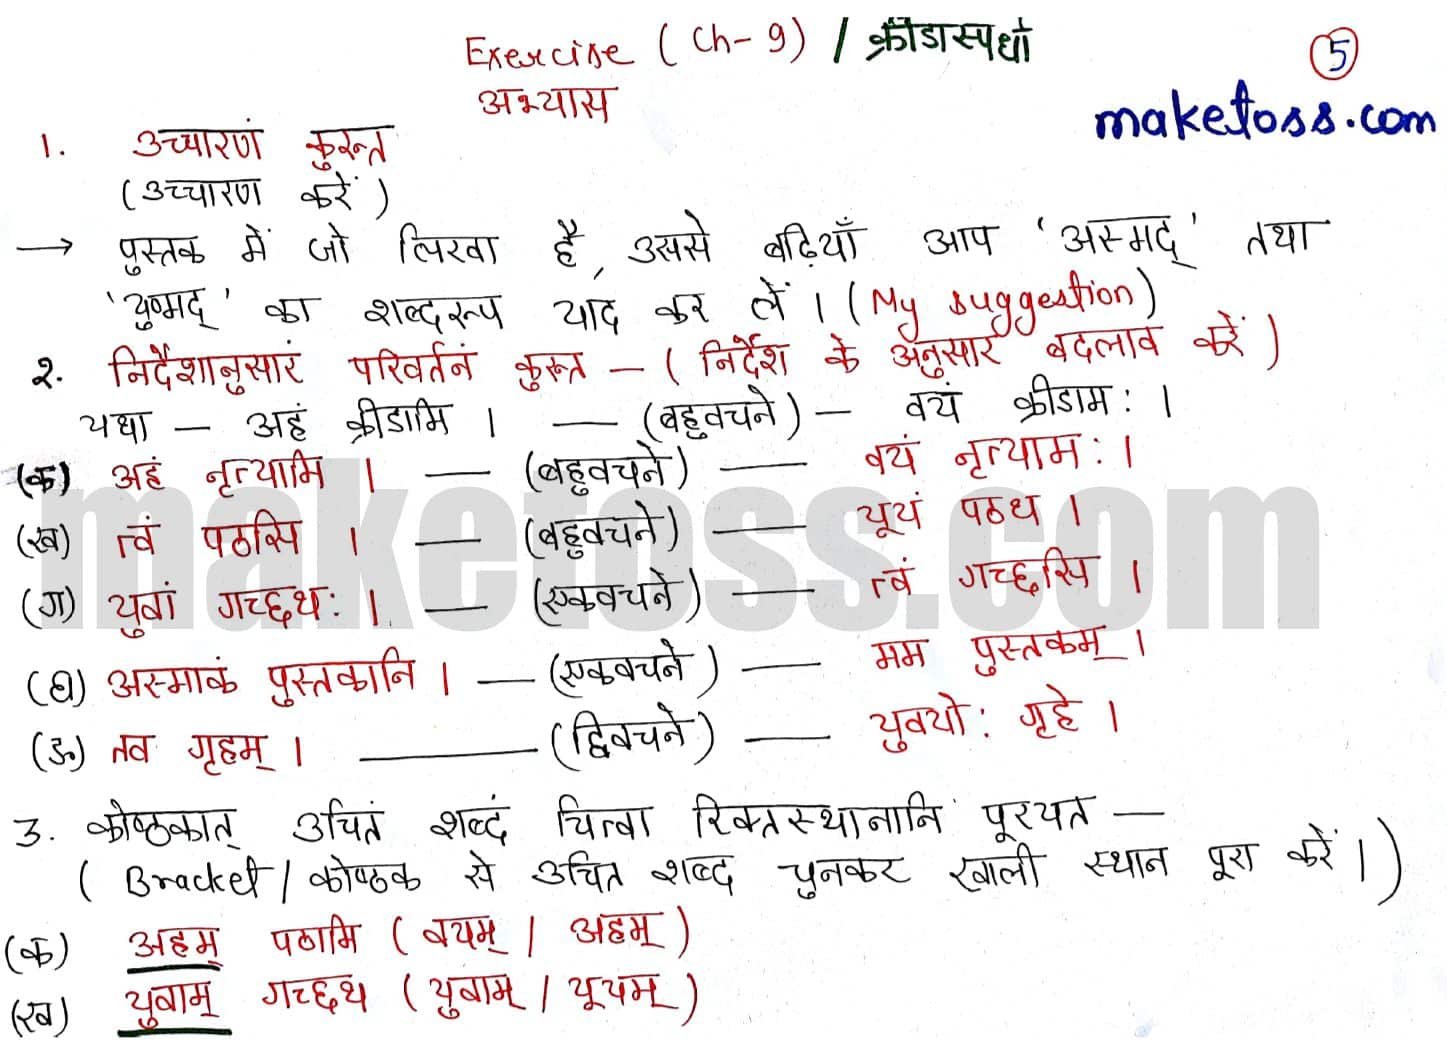 Exercise (Ch-9) / क्रीडास्पर्धा
5
अभ्यास
maketoss.com
1. उच्चारणं कुरुत
(उच्चारण करें)
→ पुस्तक में जो लिखा है, उससे बढ़ियाँ आप 'अस्मद्' तथा
'युष्मद्' का शब्दरूप याद कर लें । (My suggestion)
2. निर्देशानुसारं परिवर्तनं कुरुत – (निर्देश के अनुसार बदलाव करें)
यथा – अहं क्रीडामि । — (बहुवचने) – वयं क्रीडामः ।
(क) अहं नृत्यामि । — (बहुवचने) — वयं नृत्यामः ।
(ख) त्वं पठसि । — (बहुवचने) — यूयं पठथ ।
(ग) युवां गच्छथः । — (एकवचने) — त्वं गच्छसि ।
(घ) अस्माकं पुस्तकानि । — (एकवचने) — मम पुस्तकम् ।
(ङ) तव गृहम् । — (द्विवचने) — युवयोः गृहे ।
maketoss.com
3. कोष्ठकात् उचितं शब्दं चित्वा रिक्तस्थानानि पूरयत —
(Bracket / कोष्ठक से उचित शब्द चुनकर खाली स्थान पूरा करें ।)
(क) अहम् पठामि (वयम् / अहम्)
(ख) युवाम् गच्छथ (युवाम् / यूयम्)